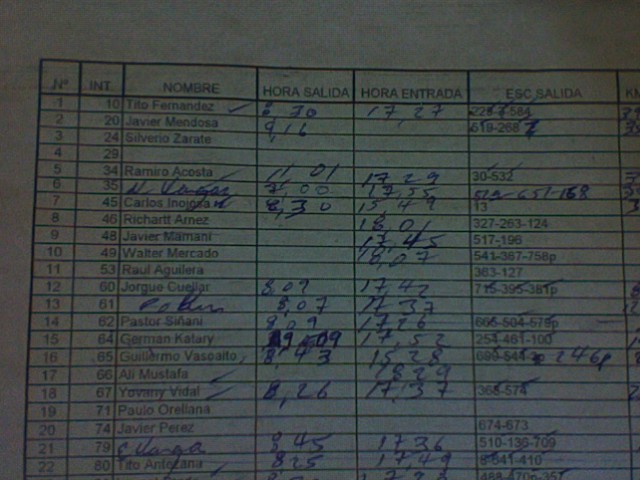 Nº INT. NOMBRE HORA SALIDA HORA ENTRADA ESC SALIDA
1 10 Tito Fernandez 17,27
2 20 Javier Mendosa 8,16 519-268
3 24 Silverio Zarate
4 29
5 34 Ramiro Acosta 11 01 17,29 30-532
6 35 Vargas 7 00 17,55
7 45 Carlos Inojosa 8,30 15 49 13
8 46 Richartt Arnez 18,01 327-263-124
9 48 Javier Mamani 17,45 517-196
10 49 Walter Mercado 18,07 541-367-758p
11 53 Raul Aguilera 363-127
12 60 Jorgue Cuellar 8,09 17,42 715-395-381p
13 61 8,07 17 37
14 62 Pastor Siñani 8,09 17,26 665-504-579p
15 64 German Katary 17,52 254-461-100
16 65 Guillermo Vasoalto 8,43 15,28 246p
17 66 Ali Mustafa 1829
18 67 Yovany Vidal 8,26 17,37 368-574
19 71 Paulo Orellana
20 74 Javier Perez 674-673
21 79 Vargas 8 45 17 36 510-136-709
22 80 Tito Antezana 825 17,49